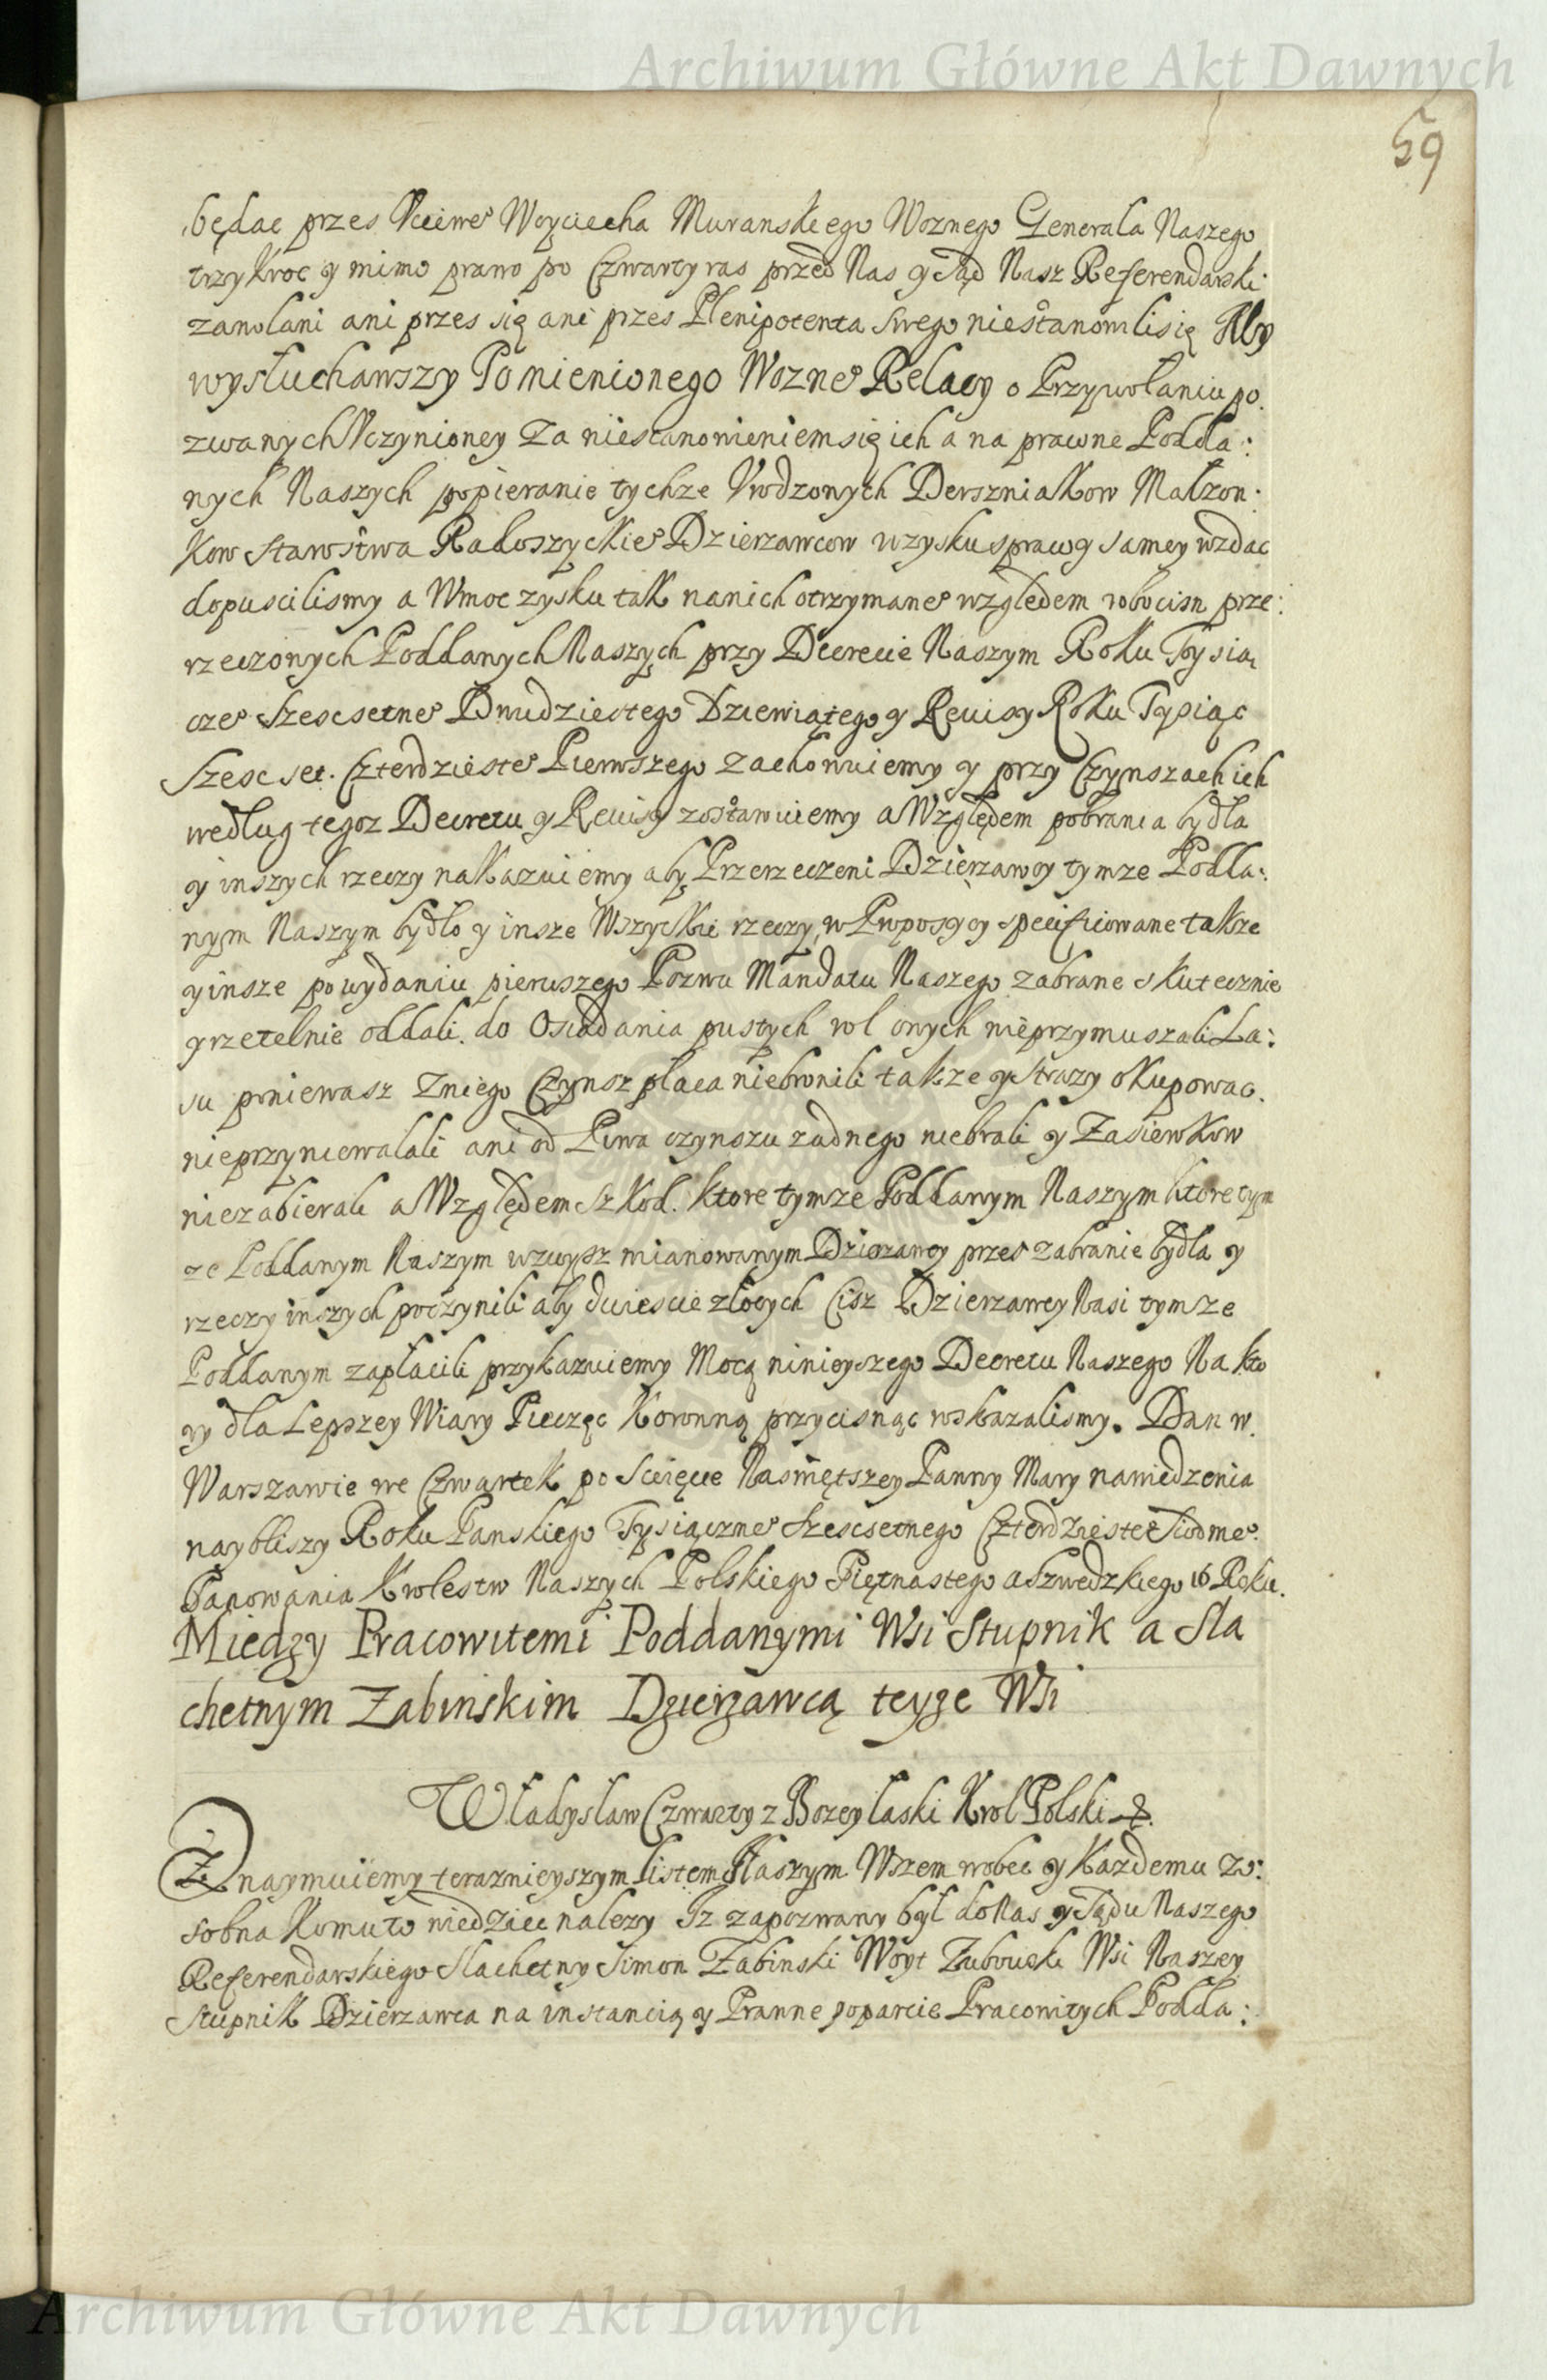 Archiwum Główne Akt Dawnych
59
będac przes Vcciwe° Woyciecha Muranskiego Woznego Generała Naszego
trzykroc y mimo prawo po Czwarty ras przed Nas y Sąd Nasz Referendarski
zawołani ani przes się ani przes Plenipotenta swego niestanowilisię My
wysłuchawszy Pomienionego Wozne° Relacy o Przywołaniu po.
zwanych Vczynioney za niestanowieniem się ich a na prawne Podda:
nych Naszych popieranie tychze Vrodzonych Derszniakow Małzon.
kow Starostwa Radoszyckie° Dzierzawcow w zysku sprawy samey wzdac
dopuscilismy a Wmoc zysku tak nanich otrzymane° względem robocizn prze:
rzeczonych Poddanych Naszych przy Decrecie Naszym Roku Tysią
cze° Szescsetne° Dwudziestego Dziewiątego y Rewisy Roku Tysiąc
Szescset. Czterdzieste° Pierwszego zachowuiemy y przy Czynszach ich
według tegoz Decretu y Rewisy zostawuiemy a Względem pobrania bydła
y inszych rzeczy nakazuiemy aby Przerzeczeni Dzierzawcy tymze Podda:
nym Naszym bydło y insze Wszyckie rzeczy w Propositiy specificowane takze
y insze po wydaniu pierwszego Pozwu Mandatu Naszego zabrane skutecznie
y rzetelnie oddali. do Osiadania pustych rol onych nieprzymuszali La:
su poniewasz zniego Czynsz płaca niebronili takze y Strazy okupowac.
nieprzyniewalali ani od Piwa czynszu zadnego niebrali y Zasiewkow
niezabierali a Względem Szkod. ktore tymze Poddanym Naszym ktore tym
ze Poddanym Naszym wzwysz mianowanym Dzierzawcy przes zabranie bydła y
rzeczy inszych poczynili aby dwiescie złotych Cisz Dzierzawcy Nasi tymze
Poddanym zapłacili przykazuiemy Mocą ninieyszego Decretu Naszego Na kto
y dla Lepszey Wiary Pieczęc Koronną przycisnąc rozkazalismy. Dan w.
Warszawie we Czwartek po Swięcie Naswiętszey Panny Mary nawiedzenia
naybliszy Roku Panskiego Tysiączne° Szescsetnego Czterdzieste° Siodme°.
Panowania Krolestw Naszych Polskiego Piętnastego a Szwedzkiego 16 Roku.
Miedzy Pracowitemi Poddanymi Wsi Stupnik a Sla
chetnym Zabinskim Dzierzawcą teyze Wsi
Władysław Czwarty z Bozey łaski Krol Polski &.
Znaymuiemy terazniejszym listem Naszym Wszem wobec y Kazdemu zo:
sobna Komu to wiedziec nalezy Iz zapozwany był do Nas y Sądu Naszego
Referendarskiego Slachetny Simon Zabinski Woyt Wsi Naszey
Stupnik Dzierzawca na instancią y Prawne poparcie Pracowitych Podda:
Archiwum Główne Akt Dawnych